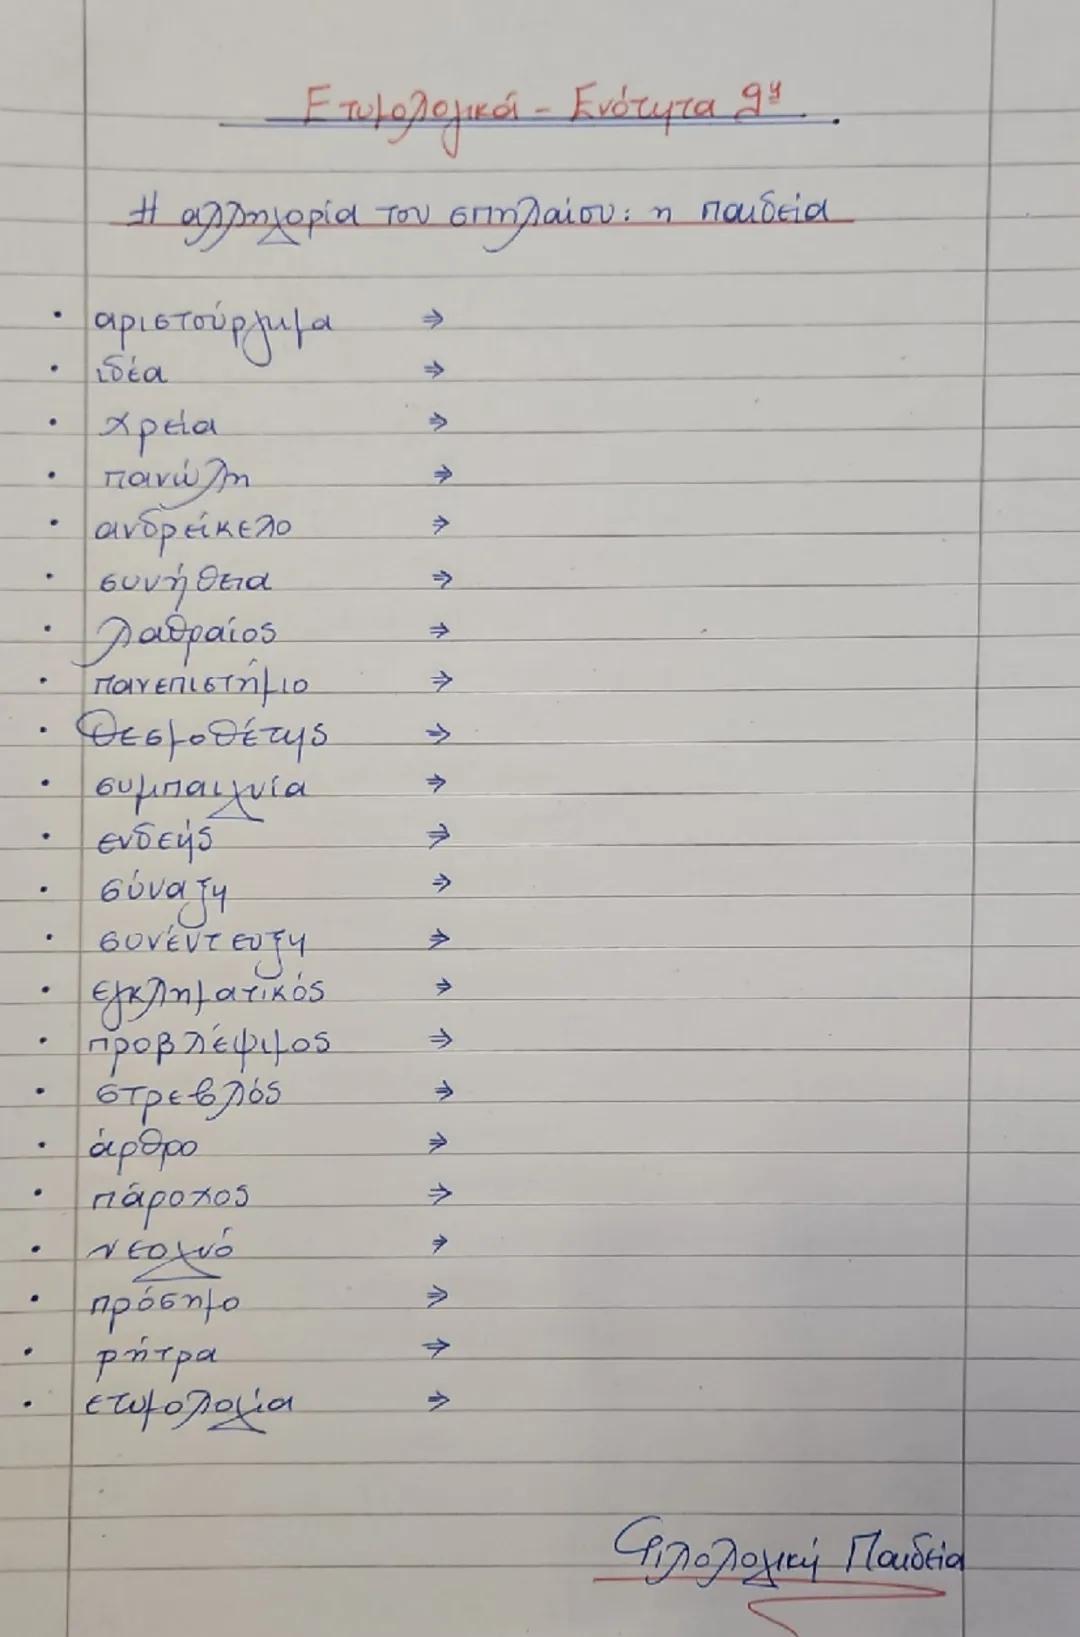 Ετυμολογικά - Ενότητα 9η
Η αλληγορία του σπηλαίου: η παιδεία
• αριστούργημα ⇒
• ιδέα ⇒
• χρεία ⇒
• πανώλη ⇒
• ανδρείκελο ⇒
• συνήθεια ⇒
• λαθραίος ⇒
• πανεπιστήμιο ⇒
• θεσμοθέτης ⇒
• συμπαιγνία ⇒
• ενδεής ⇒
• σύναξη ⇒
• συνέντευξη ⇒
• εγκληματικός ⇒
• προβλέψιμος ⇒
• στρεβλός ⇒
• άρθρο ⇒
• πάροχος ⇒
• νεογνό ⇒
• πρόσημο ⇒
• ρήτρα ⇒
• ετυμολογία ⇒
Φιλολογική Παιδεία